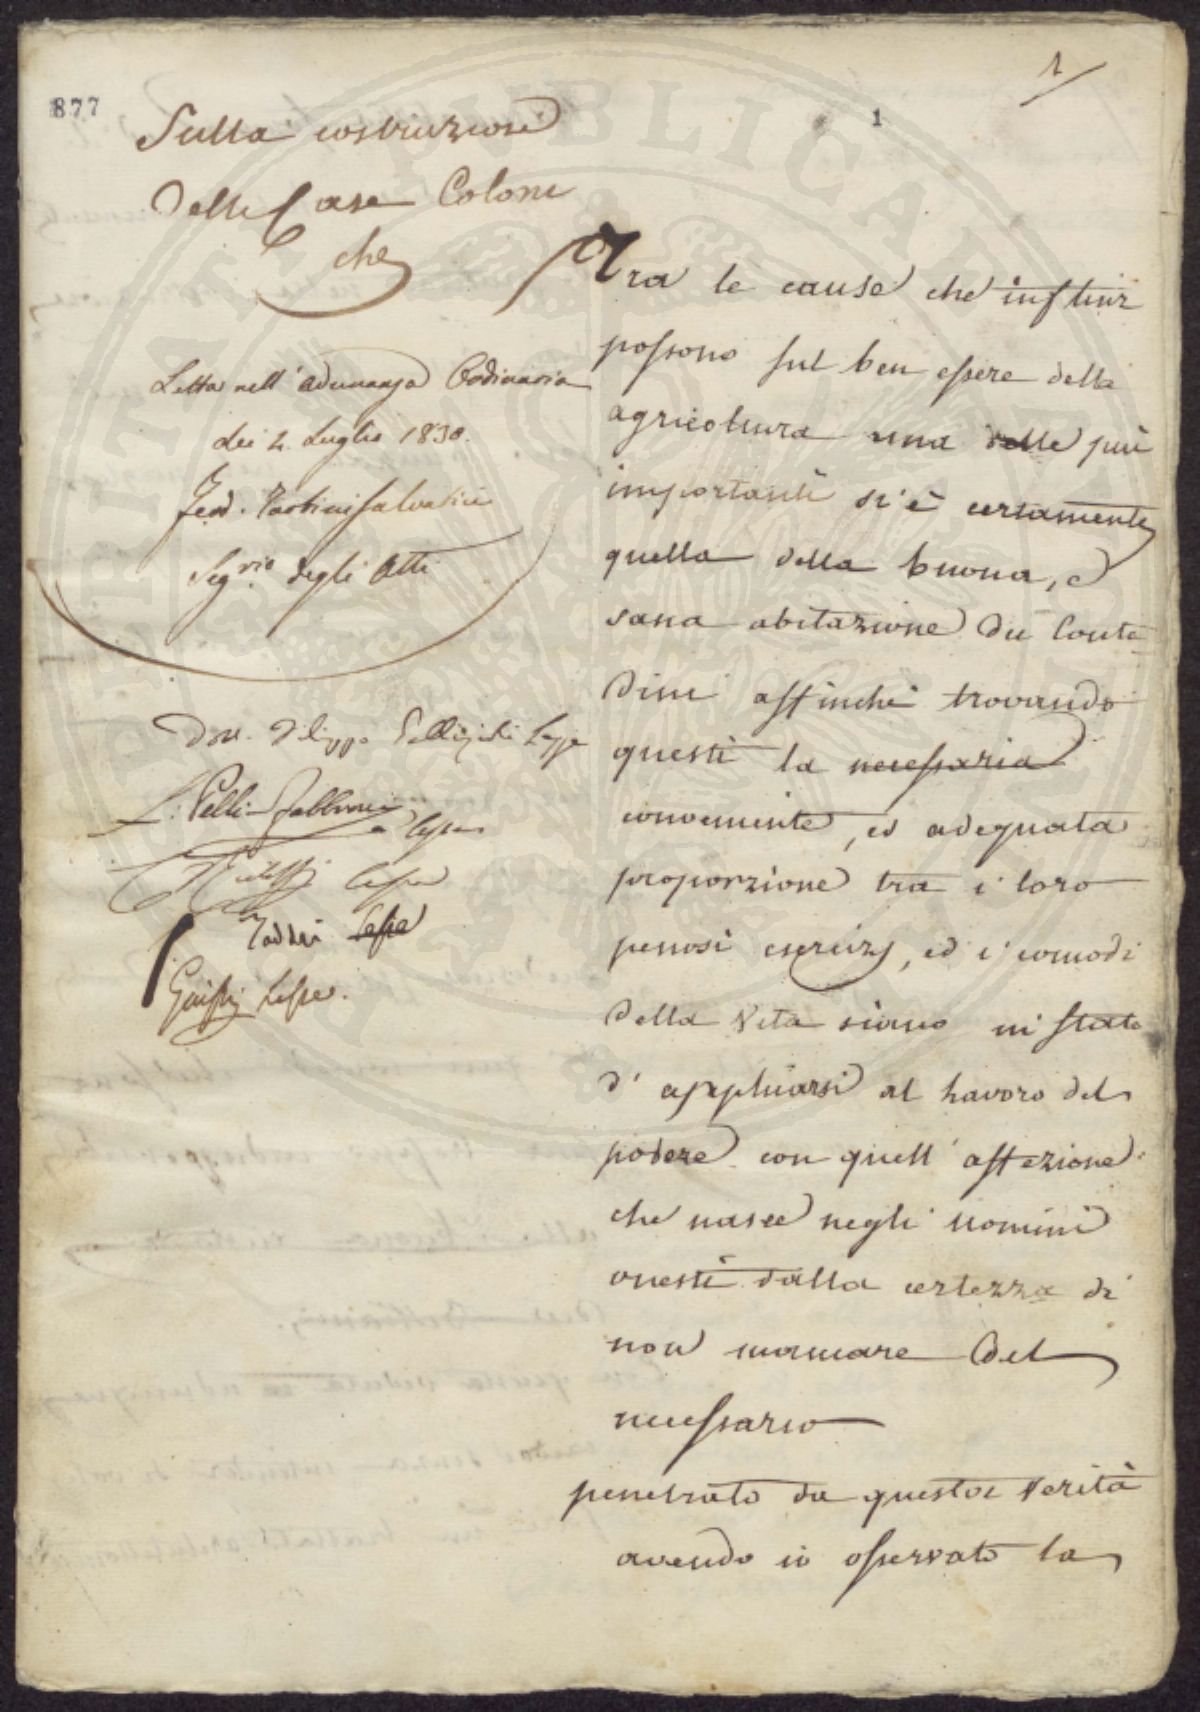 1
877
1
Sulla costruzione
Delle Case Coloni
che
Letta nell' adunanza Ordinaria
dei 2. Luglio 1830.
Ferd. Tartini Salvatici
Seg.rio degli Atti
Dott. Filippo Gallizioli lesse
L. Pelli-Fabbroni
lesse
lesse
Taddei lesse
Giusti lesse.
Tra le cause che influir
possono sul ben essere della
agricoltura una delle piu
importanti si è certamente
quella della buona, e
sana abitazione dei Conta
dini affinchè trovando
questi la necessaria
conveniente, ed adequata
proporzione tra i loro
penosi esercizj, ed i comodi
della Vita siano in stato
d' appliarsi al lavoro del
podere con quell' affezione
che nasce negli uomini
onesti dalla certezza di
non mancare del
necessario
penetrato da questa verità
avendo io osservato la